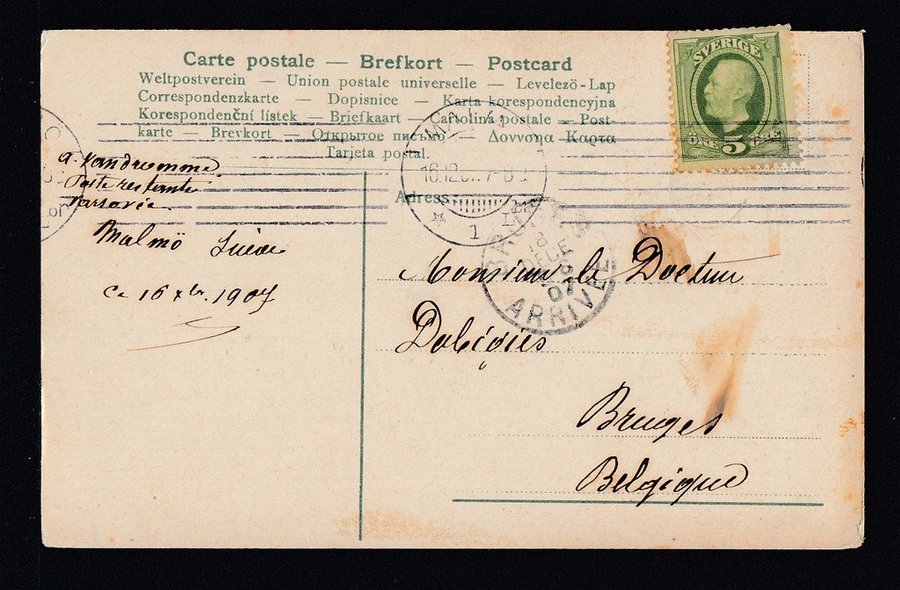 Carte postale — Brefkort — Postcard
Weltpostverein — Union postale universelle — Levelező-Lap
Correspondenzkarte — Dopisnice — Karta korespondencyjna
Korespondenční lístek — Briefkaart — Cartolina postale — Post-
karte — Brevkort — Открытое письмо — Δοννονα Καρτα
Tarjeta postal.
SVERIGE
ÖRE 5 ÖRE
a. Vandromme.
Poste restante
Varsovie.
Malmö Suède
Ce 16 xbr. 1907
16.12.07.7
1
Adress
DECE
07
ARRIVÉE
Monsieur le Docteur
Bruges
Belgique